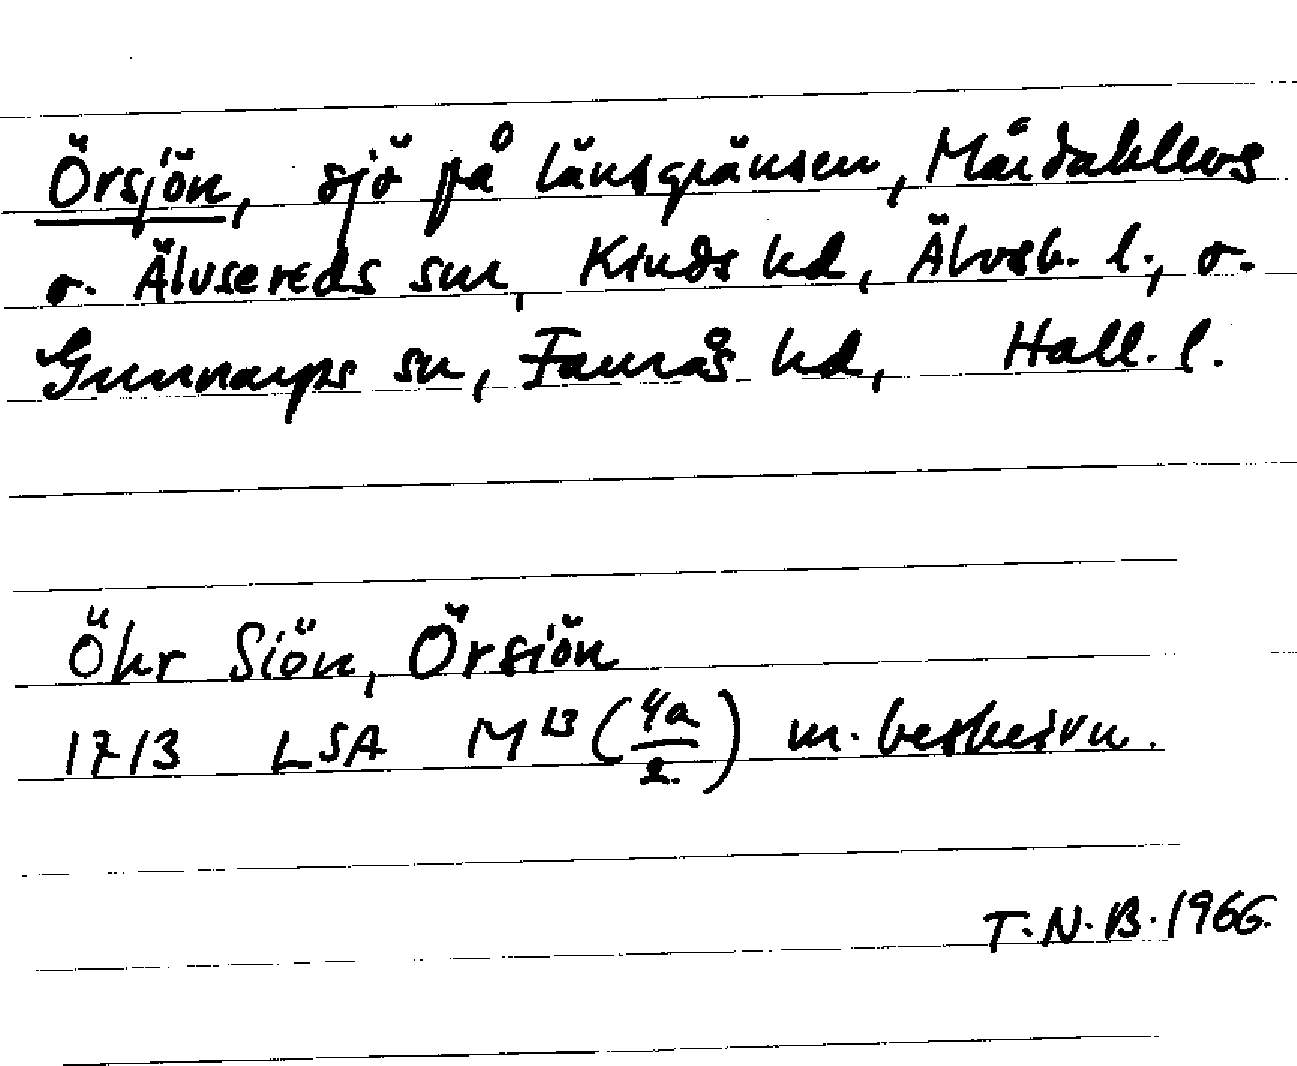 Örsjön, sjö på länsgränsen, Mårdaklevs
o. Älvsereds snr, Kinds hd, Älvsb. l., o.
Gunnarps sn, Faurås hd, Hall. l.
Öhr Siön, Örsiön
1713 LSA M 13 (4a/2) m. beskrivn.
T.N.B. 1966.